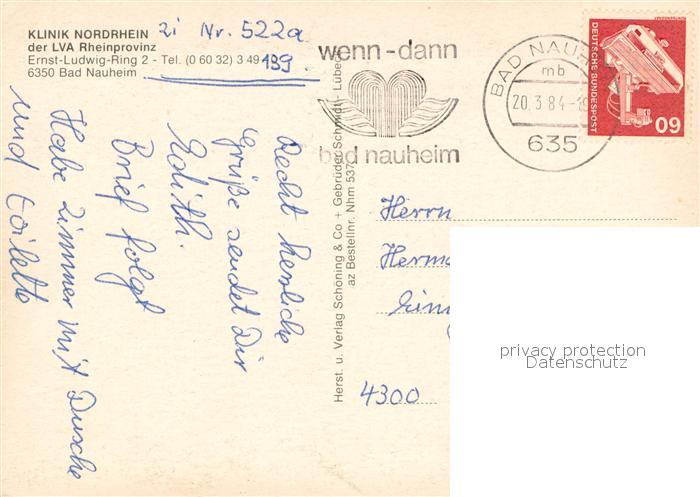 KLINIK NORDRHEIN
der LVA Rheinprovinz
Ernst-Ludwig-Ring 2 - Tel. (0 60 32) 3 49 189.
6350 Bad Nauheim
Zi Nr. 522a
wenn-dann
bad nauheim
BAD NAUHEIM
mb
20.3.84-19
635
DEUTSCHE BUNDESPOST
60
Recht herzliche
Grüße sendet Dir
Edith.
Brief folgt
Habe Zimmer mit Dusche
und Toilette
Herst. u. Verlag Schöning & Co + Gebrüder Schmidt - Lübeck
az Bestellnr. Nhm 537
Herrn
Herma
4300
privacy protection
Datenschutz